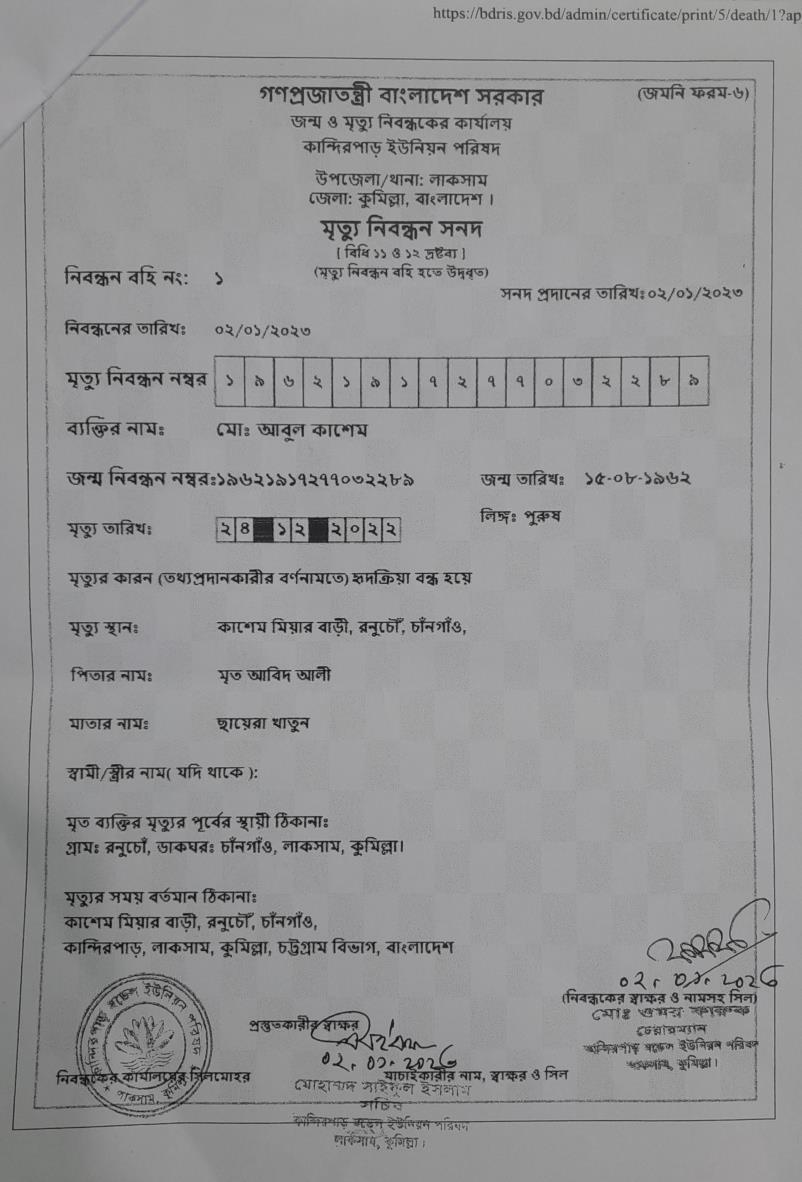 https://bdris.gov.bd/admin/certificate/print/5/death/1?ap
গণপ্রজাতন্ত্রী বাংলাদেশ সরকার
(জমনি ফরম-৬)
জন্ম ও মৃত্যু নিবন্ধকের কার্যালয়
কান্দিরপাড় ইউনিয়ন পরিষদ
উপজেলা/থানা: লাকসাম
জেলা: কুমিল্লা, বাংলাদেশ ।
মৃত্যু নিবন্ধন সনদ
[ বিধি ১১ ও ১২ দ্রষ্টব্য ]
(মৃত্যু নিবন্ধন বহি হতে উদ্ধৃত)
নিবন্ধন বহি নং: ১
সনদ প্রদানের তারিখঃ০২/০১/২০২৩
নিবন্ধনের তারিখঃ ০২/০১/২০২৩
মৃত্যু নিবন্ধন নম্বর ১ ৯ ৬ ২ ১ ৯ ১ ৭ ২ ৭ ৭ ০ ৩ ২ ২ ৮ ৯
ব্যক্তির নামঃ মোঃ আবুল কাশেম
জন্ম নিবন্ধন নম্বরঃ১৯৬২১৯১৭২৭৭০৩২২৮৯ জন্ম তারিখঃ ১৫-০৮-১৯৬২
মৃত্যু তারিখঃ ২৪ ১২ ২০২২
লিঙ্গঃ পুরুষ
মৃত্যুর কারন (তথ্যপ্রদানকারীর বর্ণনামতে) হৃদক্রিয়া বন্ধ হয়ে
মৃত্যু স্থানঃ কাশেম মিয়ার বাড়ী, রনুচৌঁ, চাঁনগাঁও,
পিতার নামঃ মৃত আবিদ আলী
মাতার নামঃ ছায়েরা খাতুন
স্বামী/স্ত্রীর নাম( যদি থাকে ):
মৃত ব্যক্তির মৃত্যুর পূর্বের স্থায়ী ঠিকানাঃ
গ্রামঃ রনুচোঁ, ডাকঘরঃ চাঁনগাঁও, লাকসাম, কুমিল্লা।
মৃত্যুর সময় বর্তমান ঠিকানাঃ
কাশেম মিয়ার বাড়ী, রনুচৌঁ, চাঁনগাঁও,
কান্দিরপাড়, লাকসাম, কুমিল্লা, চট্টগ্রাম বিভাগ, বাংলাদেশ
(নিবন্ধকের স্বাক্ষর ও নামসহ সিল)
মোঃ ওমর ফারুক
চেয়ারম্যান
কান্দিরপাড় মডেল ইউনিয়ন পরিষদ
লাকসাম, কুমিল্লা।
প্রস্তুতকারীর স্বাক্ষর
নিবন্ধকের কার্যালয়ের সিলমোহর
যাচাইকারীর নাম, স্বাক্ষর ও সিল
মোহাম্মদ সাইফুল ইসলাম
সচিব
কান্দিরপাড় মডেল ইউনিয়ন পরিষদ
লাকসাম, কুমিল্লা।
কান্দিরপাড় মডেল ইউনিয়ন পরিষদ
লাকসাম, কুমিল্লা